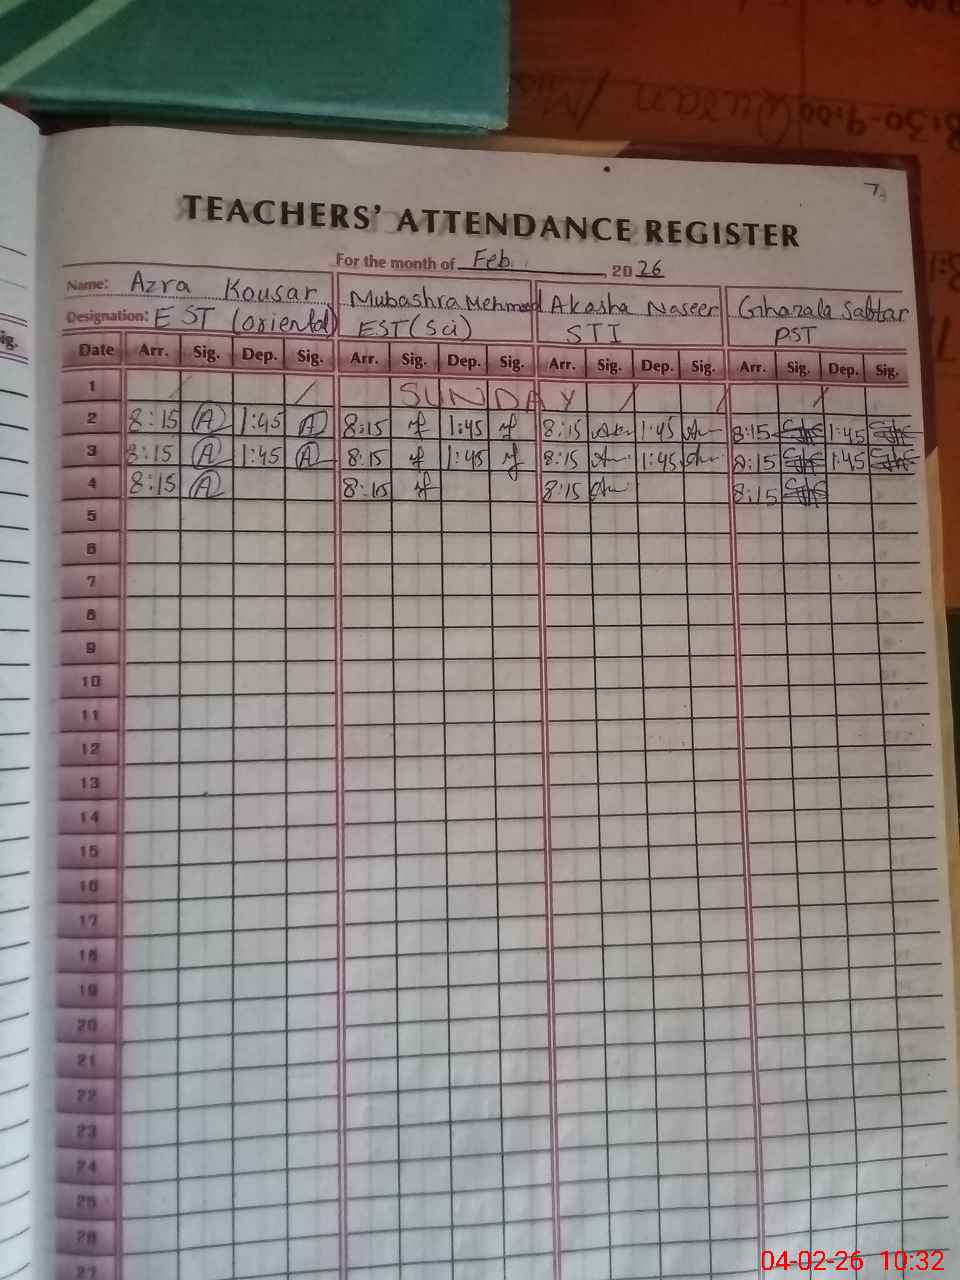 7
TEACHERS' ATTENDANCE REGISTER
For the month of Feb. 2026
Name: Azra Kousar Mubashra Mehmood Akasha Naseer Ghazala Sabtar
Designation: EST (oriental) EST (Sci) STI PST
ig.
Date Arr. Sig. Dep. Sig. Arr. Sig. Dep. Sig. Arr. Sig. Dep. Sig. Arr. Sig. Dep. Sig.
1 SUNDAY
2 8:15 A 1:45 A 8:15 1:45 8:15 1:45 8:15 1:45
3 8:15 A 1:45 A 8:15 1:45 8:15 1:45 8:15 1:45
4 8:15 A 8:15 8:15 8:15
5
6
7
8
9
10
11
12
13
14
15
16
17
18
19
20
21
22
23
24
25
26
27
8:30-9:00 Quran
04-02-26 10:32